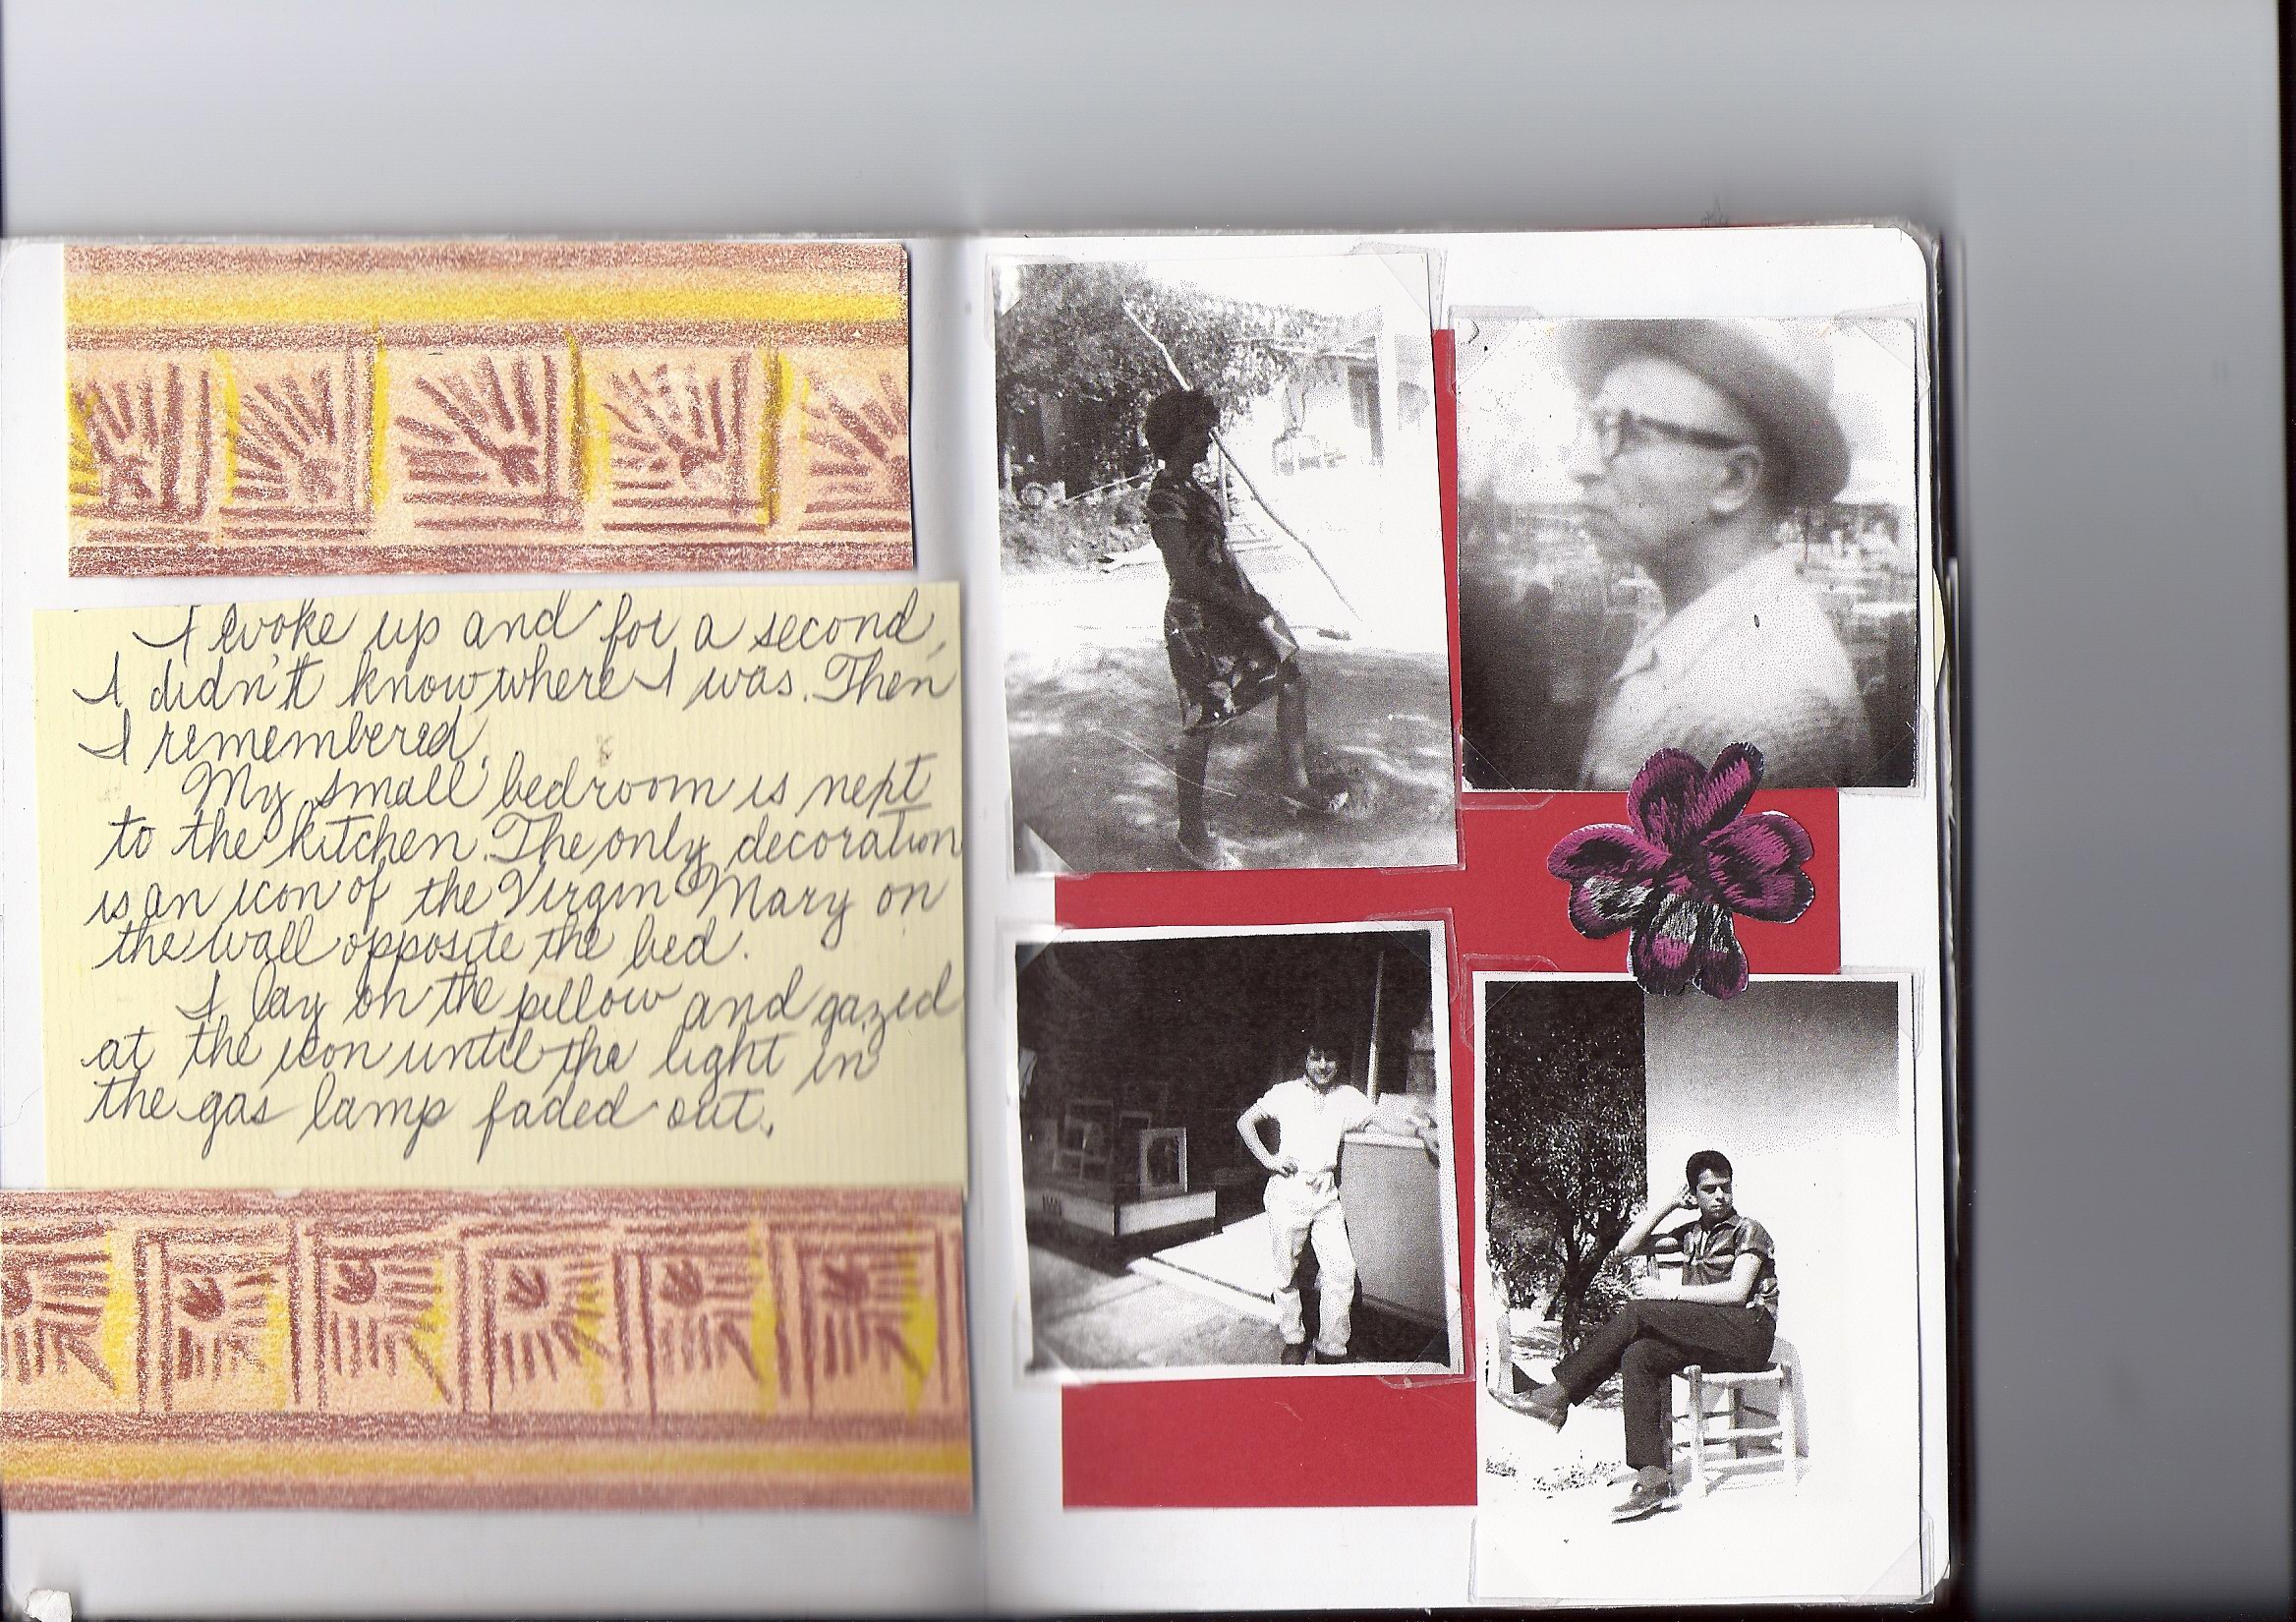 I woke up and for a second,
I didn't know where I was. Then
I remembered.
My small bedroom is next
to the kitchen. The only decoration
is an icon of the Virgin Mary on
the wall opposite the bed.
I lay on the pillow and gazed
at the icon until the light in
the gas lamp faded out.